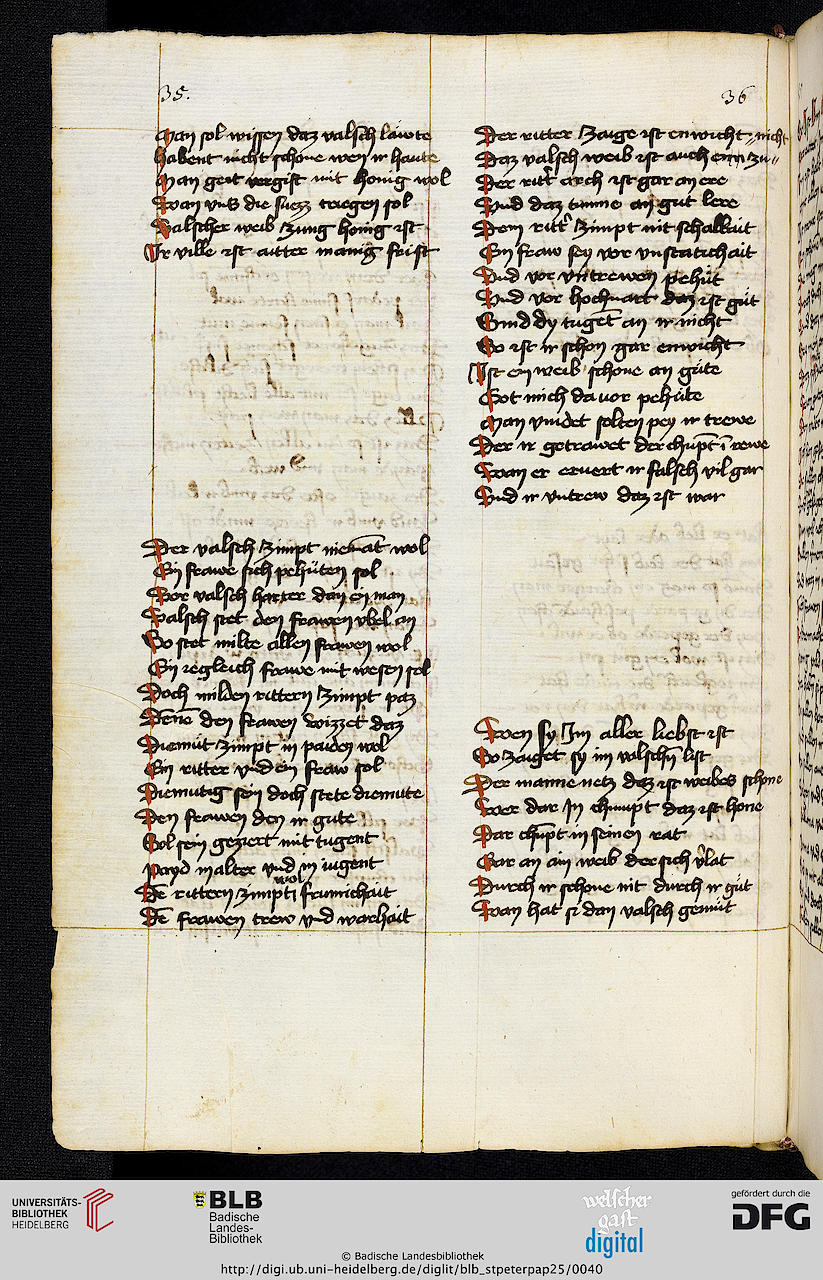 35.
Man sol wissen daz valsch läwte
habent nicht schone wen ir haute
Man geit vergift mit honig wol
Wan vns die suezz triegen sol
Valscher weib zung honig ist
Ir wille ist aitter manig frist
Der valsch zimpt niemat wol
Ein frawe sich pehüten sol
Vor valsch harter dan ein man
Valsch stet den frawen vbel an
So stet milte allen frawen wol
Ein iegleich frawe mit wesen sol
Doch milden rittern zimpt paz
Denne den frawen wizzet daz
Diemüt zimpt in paiden wol
Ein ritter vnd ein fraw sol
Diemutig sein doch stete diemute
Den frawen den ir gute
Sol sein geziert mit tugent
Payd in alter vnd in iugent
De rittern zimpt wol frumichait
De frawen trew vnd warhait
36
Der ritter zaige ist enwicht nicht
Daz valsch weib ist auch enin zu
Der ritt arch ist gar an ere
Vnd daz tumme an gut lere
Dem ritt zimpt nit schalkait
Ein fraw sey vor vnstatichait
Vnd vor vntrewen pehüt
Vnd vor hochuart daz ist güt
Sind dy tuget an ir nicht
So ist ir schon gar enwicht
Ist ein weib schone an güte
Got mich da vor pehüte
Man vindet selten pey ir trewe
Der ir getrawet der chupt i rewe
Wan er eruert ir falsch vil gar
Vnd ir vntrew daz ist war
Wen sy Im aller liebst ist
So zaiget sy im valschn list
Der manne netz daz ist weibes schone
Wer dar In chumpt daz ist hone
Dar chupt in seinen rat
Gar an ain weib der sich vlat
Durch ir schone nit durch ir güt
Wan hat si dan valsch gemüt
UNIVERSITÄTS-
BIBLIOTHEK
HEIDELBERG
BLB
Badische
Landes-
Bibliothek
welscher
gast
digital
gefördert durch die
DFG
© Badische Landesbibliothek
http://digi.ub.uni-heidelberg.de/diglit/blb_stpeterpap25/0040